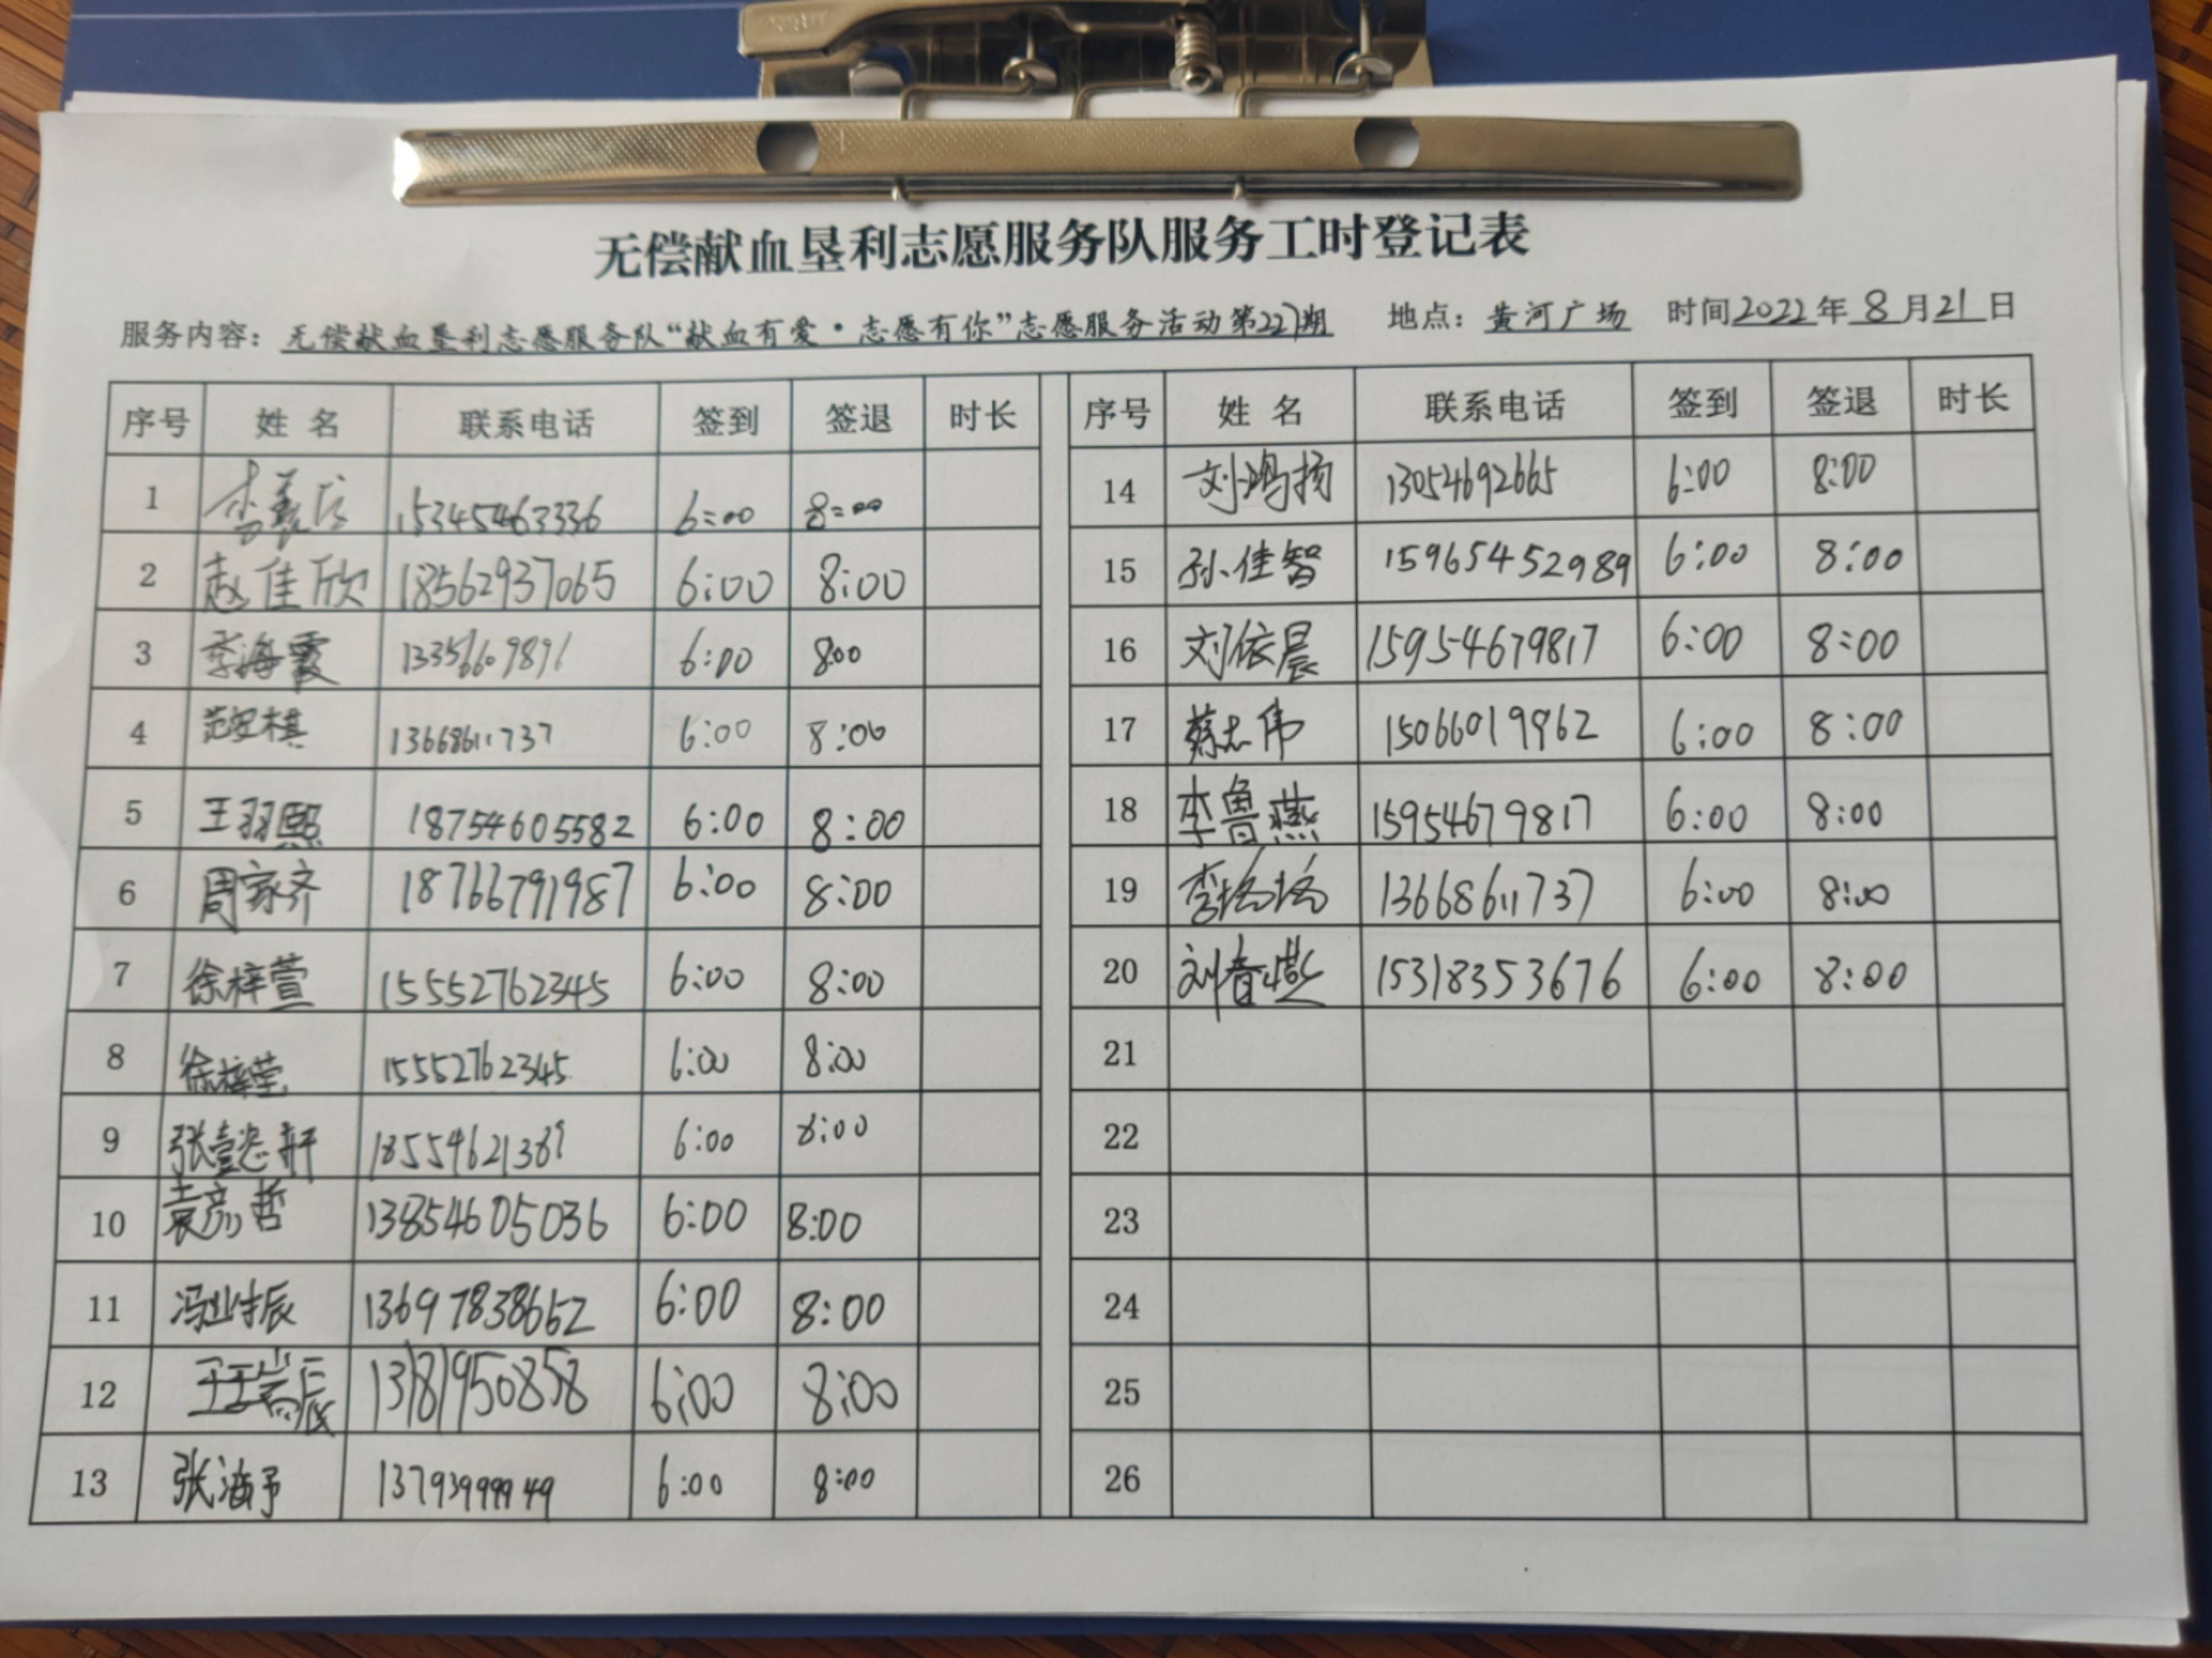 无偿献血垦利志愿服务队服务工时登记表
服务内容：无偿献血垦利志愿服务队“献血有爱·志愿有你”志愿服务活动第227期 地点：黄河广场 时间2022年8月21日
序号 姓名 联系电话 签到 签退 时长 序号 姓名 联系电话 签到 签退 时长
1 15345463336 6:00 8:00 14 刘鸿扬 13054692665 6:00 8:00
2 赵佳欣 18562937065 6:00 8:00 15 孙佳智 159654452989 6:00 8:00
3 李海霞 6:00 8:00 16 刘依晨 15954679817 6:00 8:00
4 13668611737 6:00 8:00 17 蔡志伟 15066019962 6:00 8:00
5 王羽熙 18754605582 6:00 8:00 18 李鲁燕 15954679817 6:00 8:00
6 周家齐 18766791987 6:00 8:00 19 13668611737 6:00 8:00
7 徐梓萱 15552762345 6:00 8:00 20 15318353676 6:00 8:00
8 15552762345 6:00 8:00 21
9 6:00 8:00 22
10 袁彦哲 13854605036 6:00 8:00 23
11 13697838652 6:00 8:00 24
12 13181950858 6:00 8:00 25
13 张海予 6:00 8:00 26